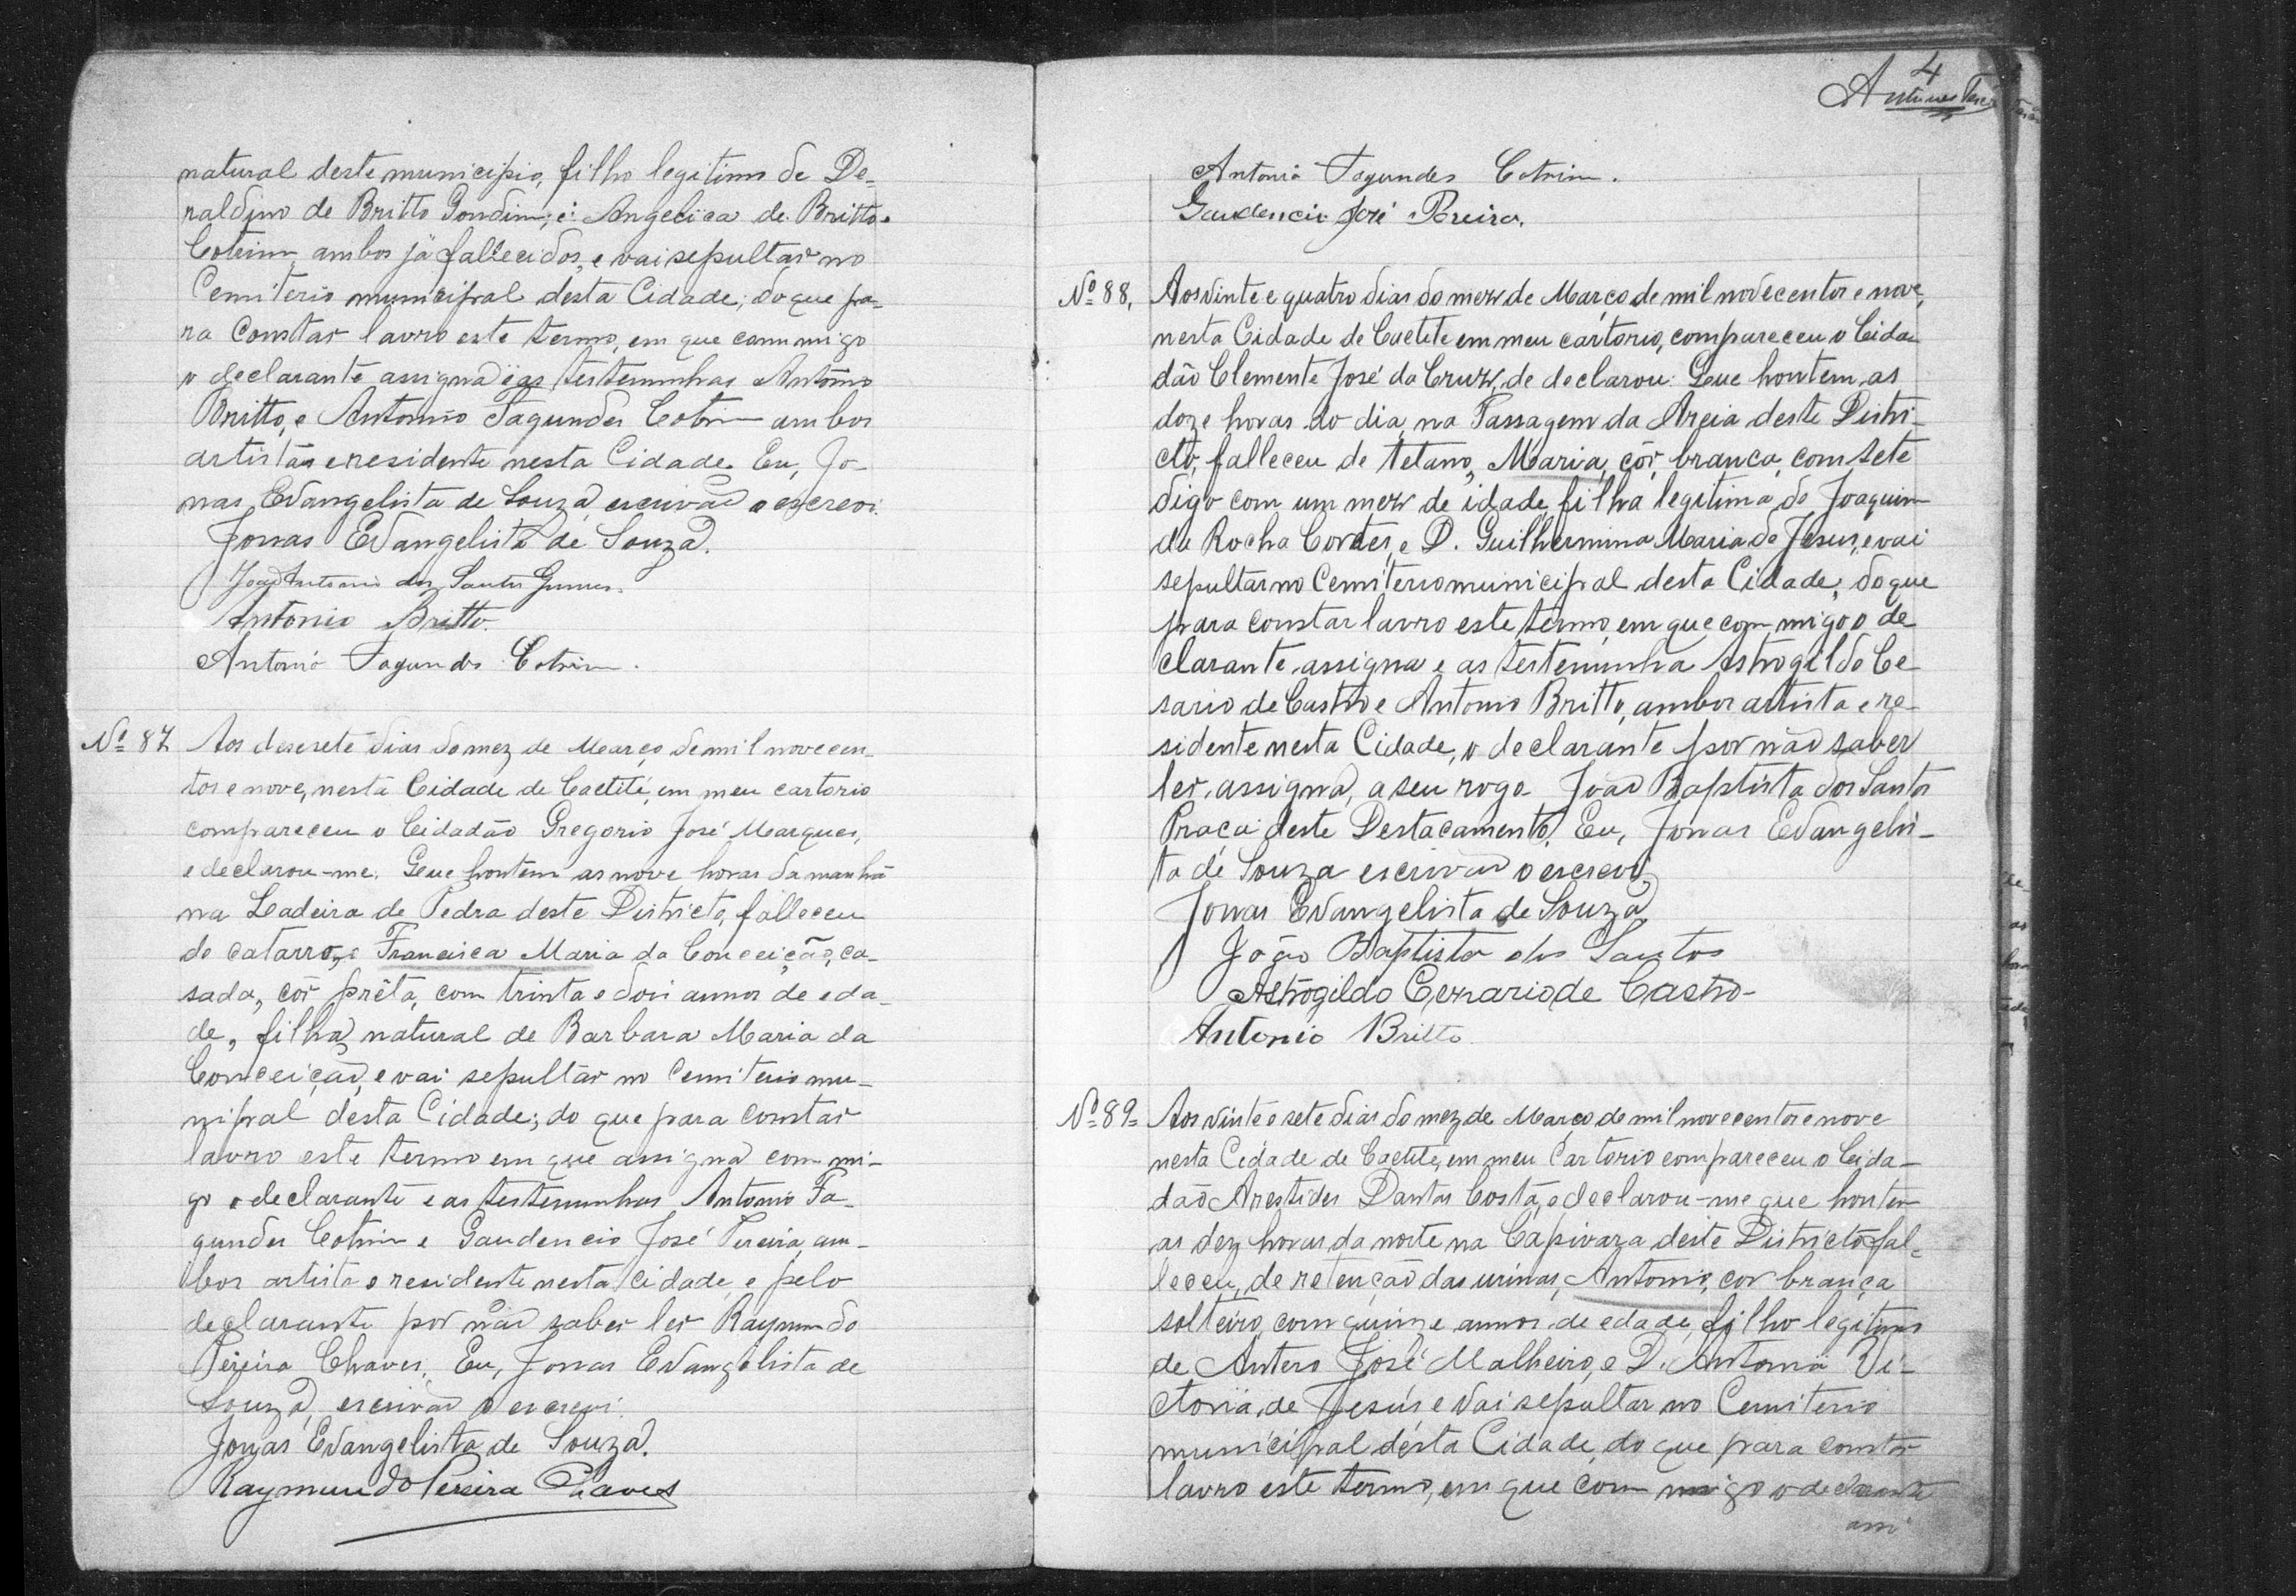 natural deste municipio, filho legitimo de De-
raldino de Britto Gondim, e Angelica de Britto
Cotrim, ambos já fallecidos, e vai sepultar no
Cemiterio municipal desta Cidade; do que pa-
ra constar lavro este termo, em que commigo
o declarante assigna e as testemunhas Antonio
Britto, e Antonio Fagundes Cotrim ambos
artistas e residente nesta Cidade. Eu, Jo-
nas Evangelista de Souza, escrivão o escrevi.
Jonas Evangelista de Souza.
João Antonio dos Santos Gumes.
Antonio Britto.
Antonio Fagundes Cotrim.
Nº 87 Aos desesete dias do mez de Março de mil novecen-
tos e nove, nesta Cidade de Caetité, em meu cartorio
compareceu o Cidadão Gregorio José Marques,
e declarou-me. Que hontem as nove horas da manhã
na Ladeira de Pedra deste Districto, falleceu
de catarro, Francisca Maria da Conceição, ca-
sada, côr prêta, com trinta e dois annos de eda-
de, filha natural de Barbara Maria da
Conceição, e vai sepultar no Cemiterio mu-
nipal desta Cidade; do que para constar
lavro este termo em que assigna com mi-
go o declarante e as testemunhas Antonio Fa-
gundes Cotrim e Gaudencio José Pereira, am-
bos artista e residente nesta Cidade, e pelo
declarante por não saber ler Raymundo
Pereira Chaves. Eu, Jonas Evangelista de
Souza, escrivão o escrevi.
Jonas Evangelista de Souza.
Raymundo Pereira Chaves
4
Antunes
Antonio Fagundes Cotrim.
Gaudencio José Pereira.
Nº 88, Aos vinte e quatro dias do mez de Março de mil novecentos e nove,
nesta Cidade de Caetite em meu cartorio, compareceu o Cida-
dão Clemente José da Cruz, de declarou: Que hontem, as
doze horas do dia, na Passagem da Areia deste Distri-
cto, falleceu de tetano, Maria, côr branca, com sete
digo com um mez de idade, filha legitima de Joaquim
da Rocha Cortes, e D. Guilhermina Maria de Jesus, e vai
sepultar no Cemiterio municipal desta Cidade; do que
para constar lavro este termo, em que com migo o de-
clarante assigna e as testemunha Astrogildo Ce-
sario de Castro e Antonio Britto, ambos artista e re-
sidente nesta Cidade, o declarante por não saber
ler, assigna, a seu rogo João Baptista dos Santos
Praça deste Destacamento. Eu, Jonas Evangelis-
ta de Souza escrivão o escrevi
Jonas Evangelista de Souza
João Baptista dos Santos
Astrogildo Cezario de Castro-
Antonio Britto
Nº 89- Aos vinte e sete dias do mez de Março de mil novecentos e nove
nesta Cidade de Caetité, em meu Cartorio compareceu o Cida-
dão Arestides Dantas Costa, e declarou-me que hontem
as dez horas da noite na Capivara deste Districto fal-
leceu, de retenção das urinas, Antonio, cor branca
solteiro, com quinze annos de edade, filho legitimo
de Antero José Malheiro, e D. Antonia Vi-
ctoria, de Jesús, e vai sepultar no Cemiterio
municipal désta Cidade, do que para constar
lavro este termo, em que com migo o declarante
assi